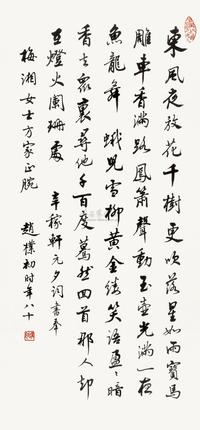 東風夜放花千樹更吹落星如雨寶馬
雕車香滿路鳳簫聲動玉壺光轉一夜
魚龍舞 蛾兒雪柳黃金縷笑語盈〻暗
香去眾裏尋他千百度驀然回首那人却
在燈火闌珊處 辛稼軒元夕詞書奉
梅湘女士方家正腕
趙樸初時年八十